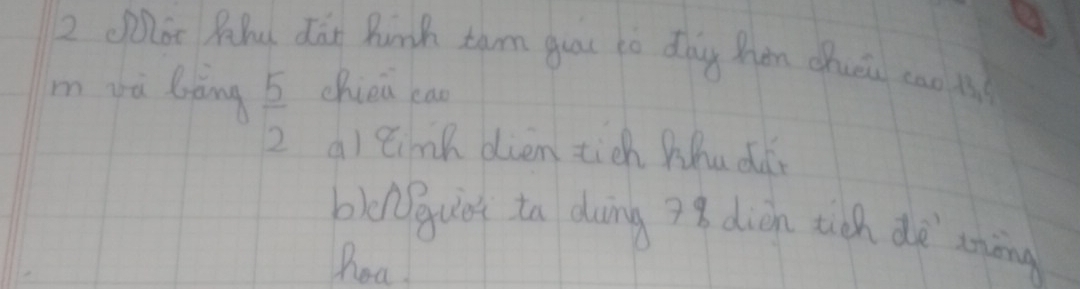 2 Một khu đất hình tam giác có đáy hơn chiều cao 13,5
m và bằng 5/2 chiều cao
a) Tính diện tích khu đất
b) Người ta dùng 78 diện tích để trồng
hoa.